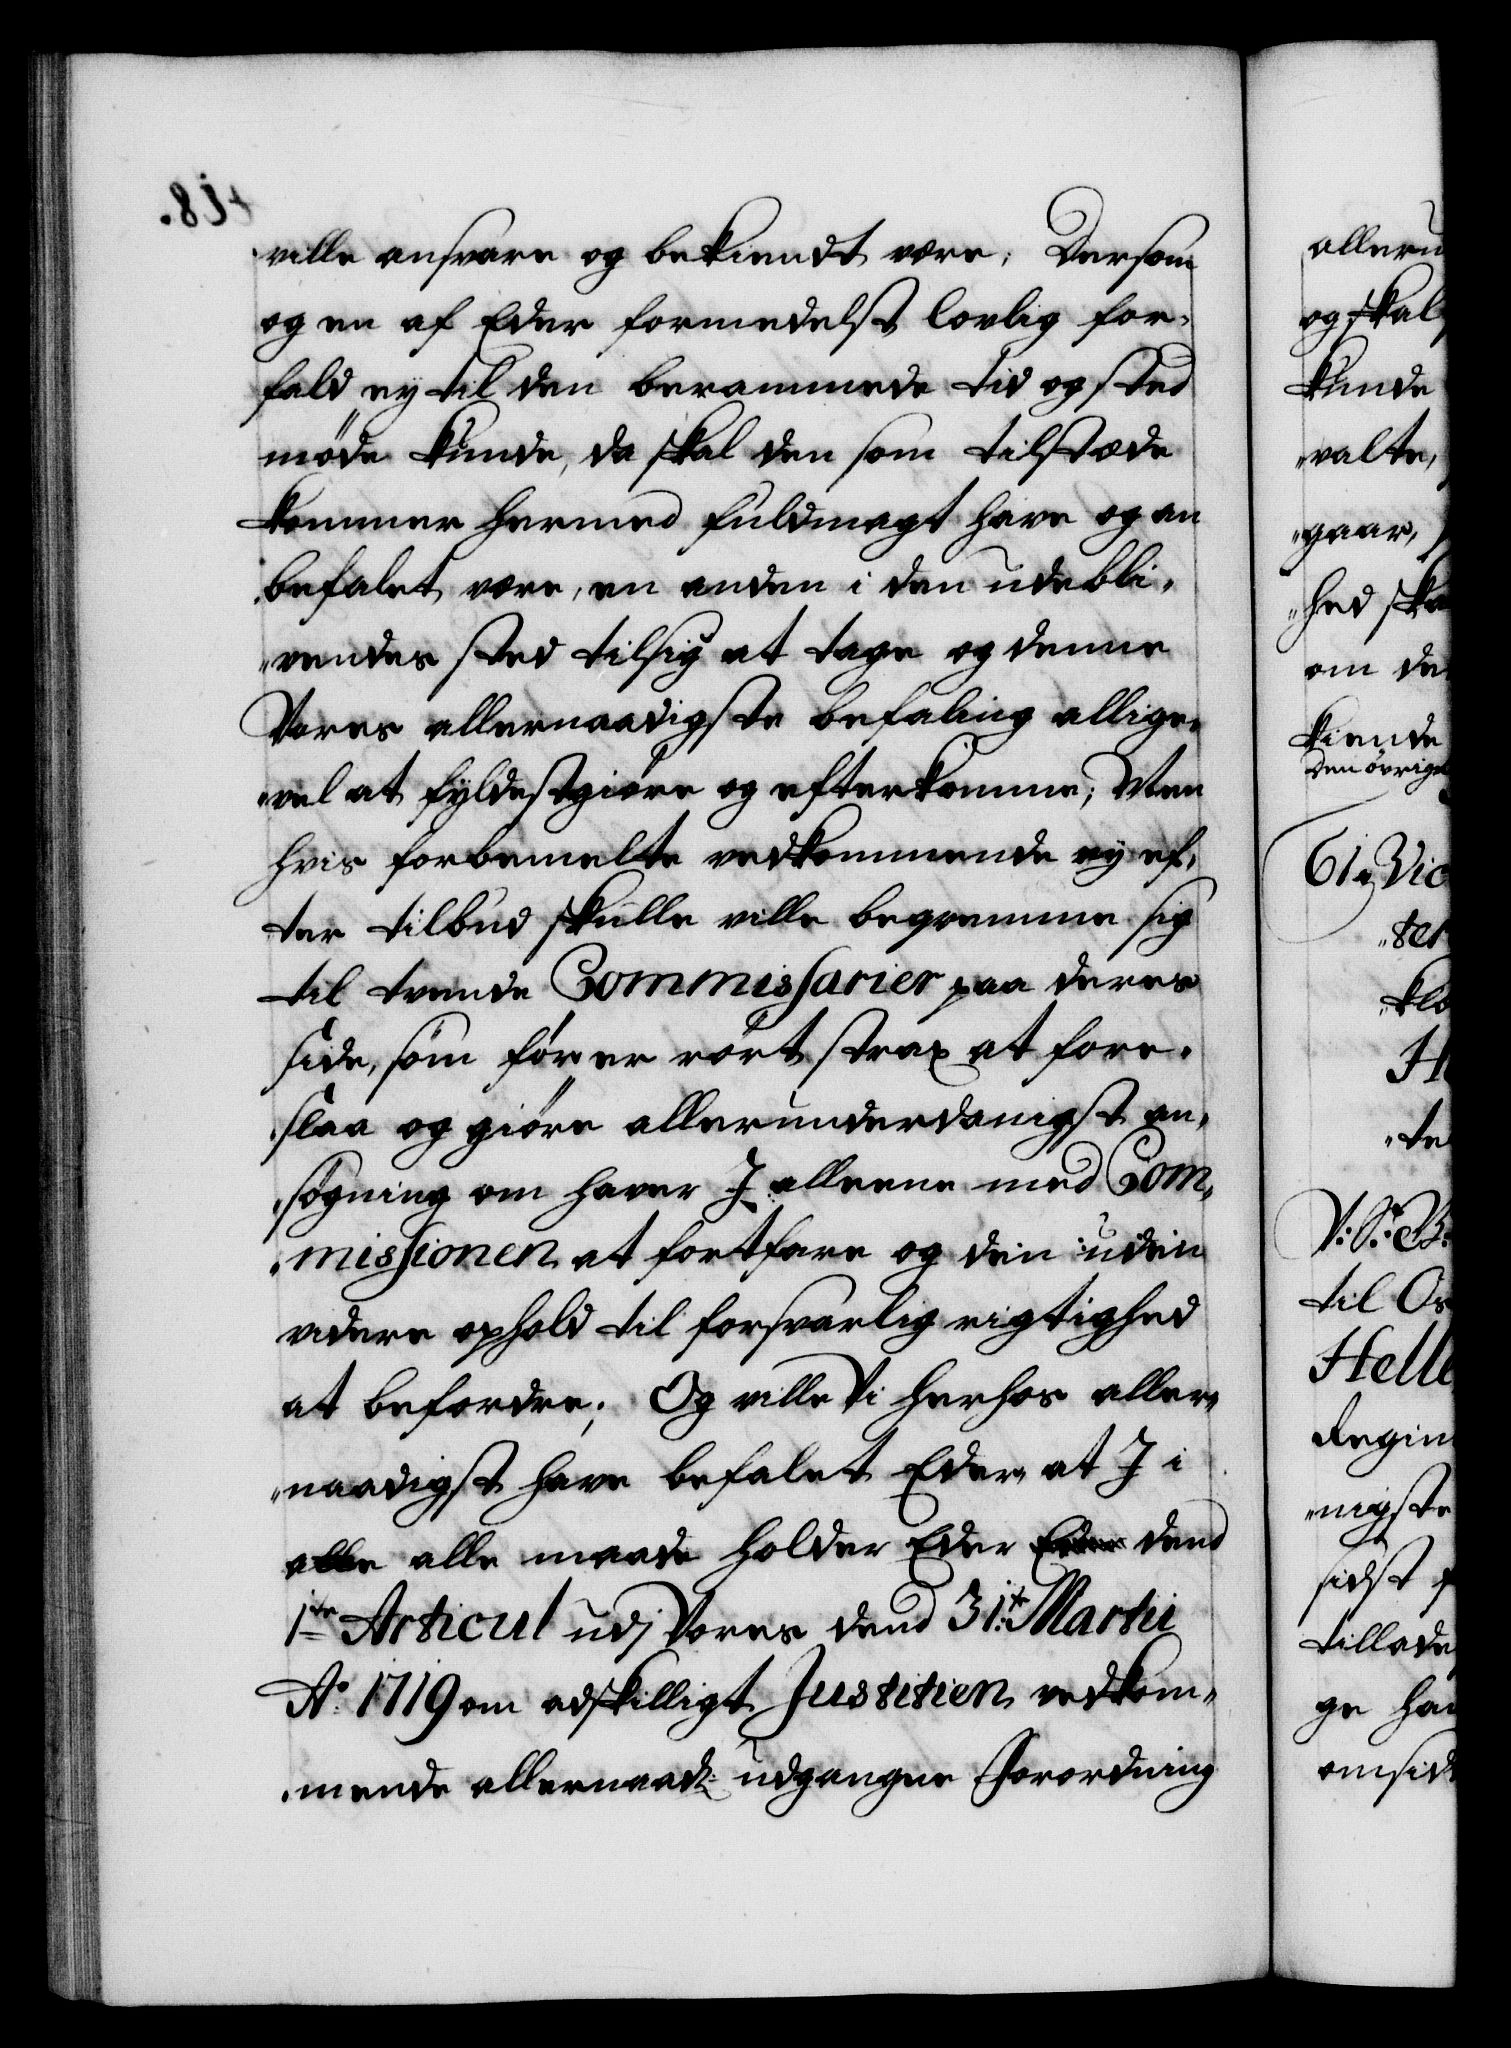 ville ansvare og bekiendt være; Dersom
og en af Eder formedelst lovlig for-
fald ey til den berammede tid og sted
møde kunde, da skal den som tilstæde
kommer hermed fuldmagt have og an
befalet være, en anden i den udebli-
vendes sted til sig at tage og denne
Vores allernaadigste befaling allige-
vel at fyldestgiøre og efterkomme; Men
hvis forbemelte vedkommende ey ef-
ter tilbud skulle ville begvemme sig
til tvende Commissarier paa deres
side, som før er rørt strax at fore-
slaa og giøre allerunderdanigst an-
søgning om haver I alleene med Com-
missionen at fortfare og den uden
videre ophold til forsvarlig rigtighed
at befordre; Og ville Vi herhos aller-
naadigst have befalet Eder, at I i
alle alle maade holder Eder dend
1te Articul udj Vores dend 31te Martii
Ao 1719 om adskilligt Justitien vedkom-
mende allernaad: udgangne Forordning
alleru
og skal
kunde
valte,
gaar,
hed ska
om de
kiende
den övrige
61. Vic
ter
klo
H
te
V: S: B:
til Os
Helle
Regim
nigste
sidst
tillade
ge han
omsid